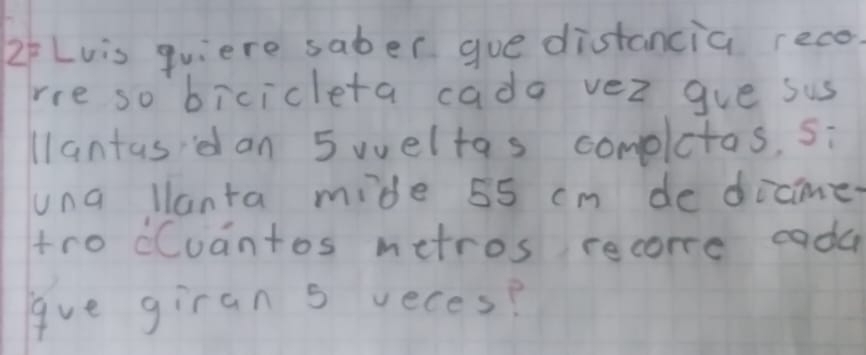 2= Luis quiere saber que distancia reco-
rre so bicicleta cada vez que sus
llantas dan 5 vueltas completas. Si
una llanta mide 55 cm de diáme-
tro ¿Cuántos metros recorre cada
que giran 5 veces?